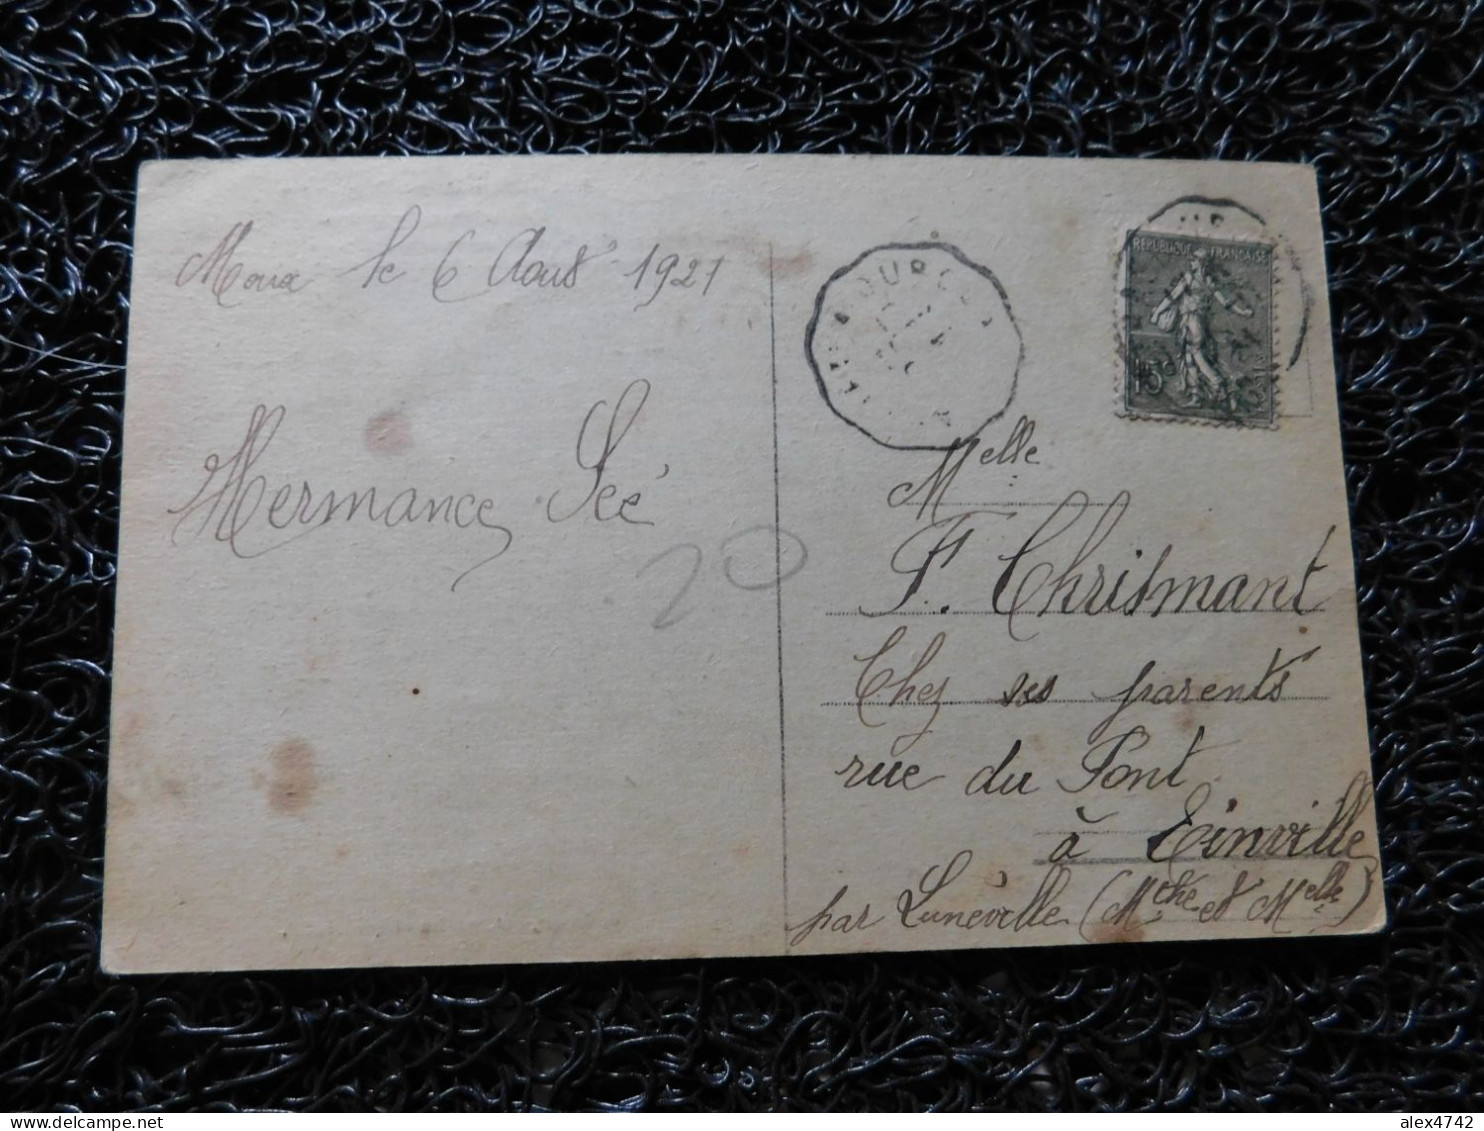 Moux le 6 Août 1921
Hermance Séé
20
REPUBLIQUE FRANÇAISE
15c
Melle
F. Chrismant
Chez ses parents
rue du Pont
à Einville
par Lunéville (Mthe et Melle)
alex4742